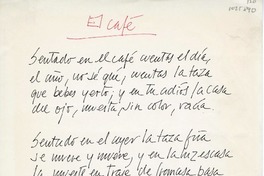 El café
Sentado en el café cuentas el día,
el año, no sé qué, cuentas la taza
que bebes yerto; y en tu adiós, la casa
del ojo, muerta, sin color, vacía.
Sentado en el ayer la taza fría
se mueve y mueve, y en la luz escasa
la muerte en traje de